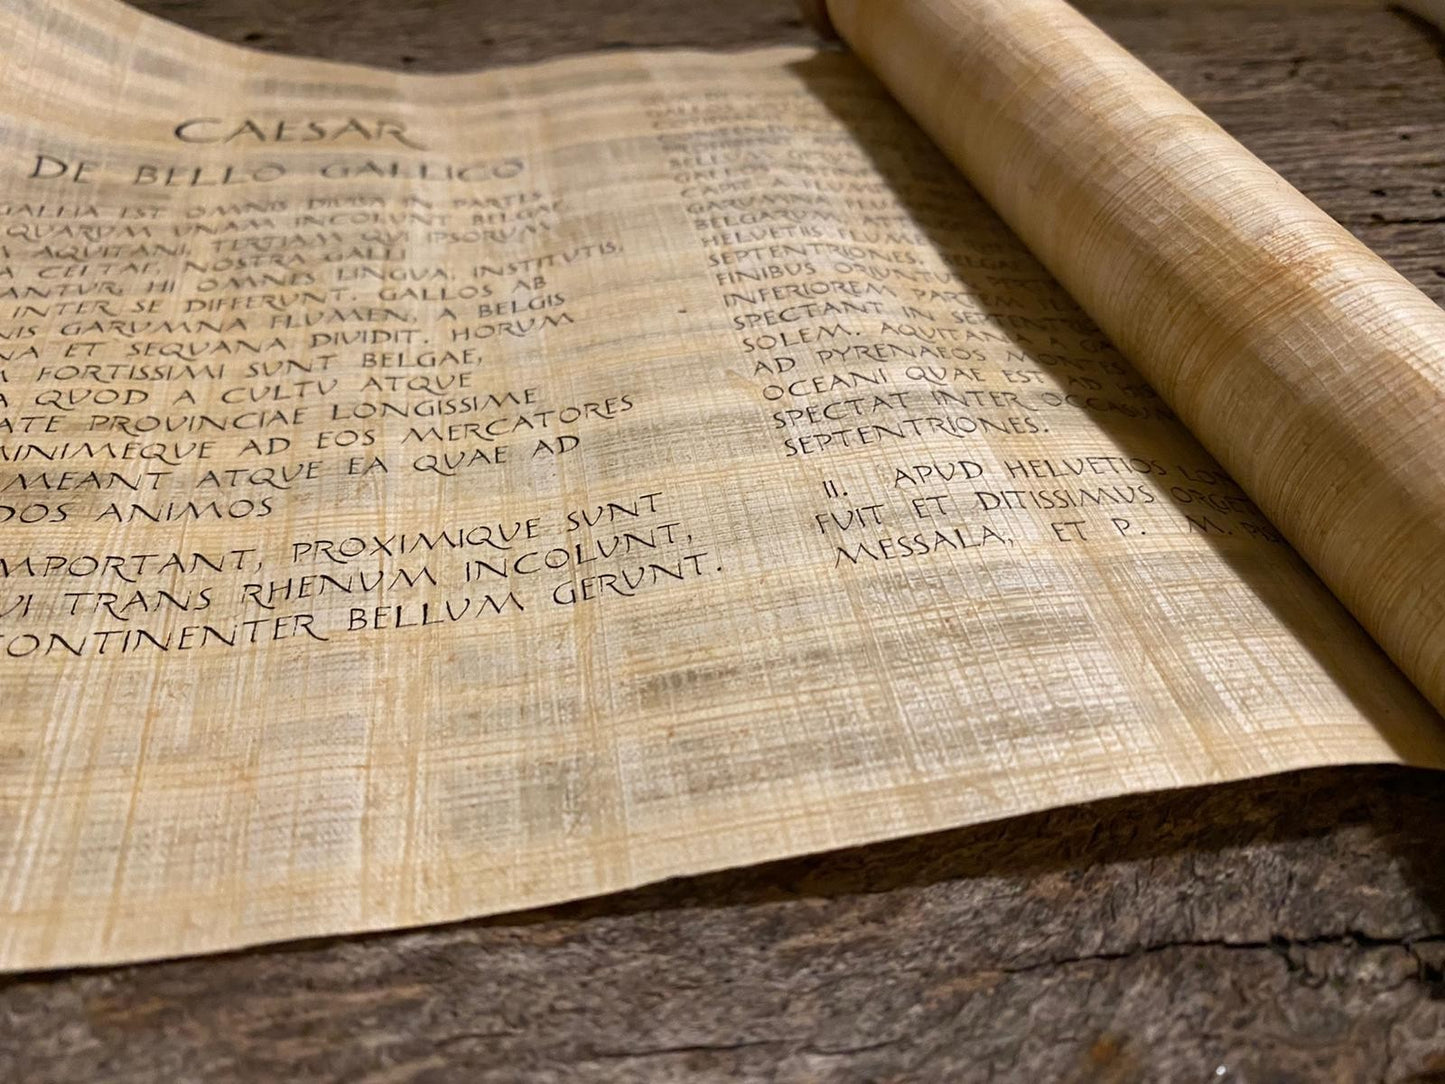 CAESAR
DE BELLO GALLICO
GALLIA EST OMNIS DIVISA IN PARTES
QUARUM UNAM INCOLUNT BELGAE
AQUITANI, TERTIAM QUI IPSORUM
CELTAE, NOSTRA GALLI
ANTUR, HI OMNES LINGUA, INSTITUTIS,
INTER SE DIFFERUNT. GALLOS AB
NIS GARUMNA FLUMEN, A BELGIS
NA ET SEQUANA DIVIDIT. HORUM
FORTISSIMI SUNT BELGAE,
A QUOD A CULTU ATQUE
ATE PROVINCIAE LONGISSIME
MINIMEQUE AD EOS MERCATORES
MEANT ATQUE EA QUAE AD
DOS ANIMOS
MPORTANT, PROXIMIQUE SUNT
UI TRANS RHENUM INCOLUNT,
CONTINENTER BELLUM GERUNT.
GALLOS
CAPIT A FLUM
GARUMNA FLU
BELGARUM, ATT
HELVETIIS FLUME
SEPTENTRIONES. BELGAE
FINIBUS ORIUNTUR
INFERIOREM PARTEM FL
SPECTANT IN SEPTENTRI
SOLEM. AQUITANIA A GA
AD PYRENAEOS MONTES
OCEANI QUAE EST AD HI
SPECTAT INTER OCCASUM
SEPTENTRIONES.
II. APUD HELVETIOS LON
FUIT ET DITISSIMUS ORGET
MESSALA, ET P. M. PIS